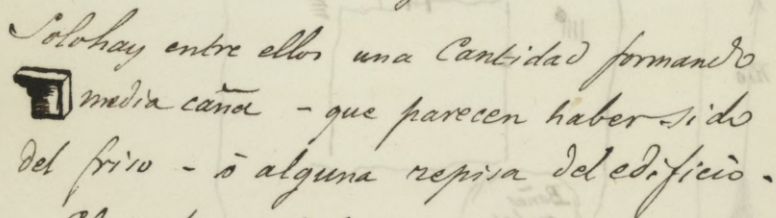 Solo hay entre ellos una Cantidad formando
media caña - que parecen haber sido
del friso - ò alguna repisa del edificio.